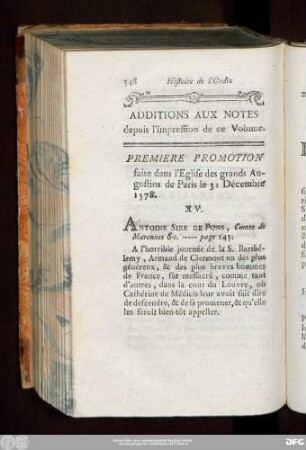 548 Histoire de l'Ordre
ADDITIONS AUX NOTES
depuis l'impression de ce Volume.
PREMIERE PROMOTION
faite dans l'Eglise des grands Au-
gustins de Paris le 31 Décembre
1578.
XV.
ANTOINE SIRE DE PONS, Comte de
Marennes &c. ---- page 145.
A l'horrible journée de la S. Barthé-
lemy, Armand de Clermont un des plus
généreux, & des plus braves hommes
de France, fut massacré, comme tant
d'autres, dans la cour du Louvre, où
Cathérine de Médicis leur avoit fait dire
de descendre, & de se promener, & qu'elle
les feroit bien-tôt appeller.
DFG